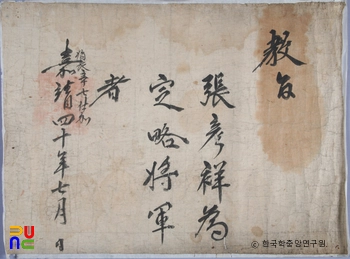 敎旨
張彦祥爲
定略將軍
者
嘉靖四十年七月 日
ⓒ 한국학중앙연구원